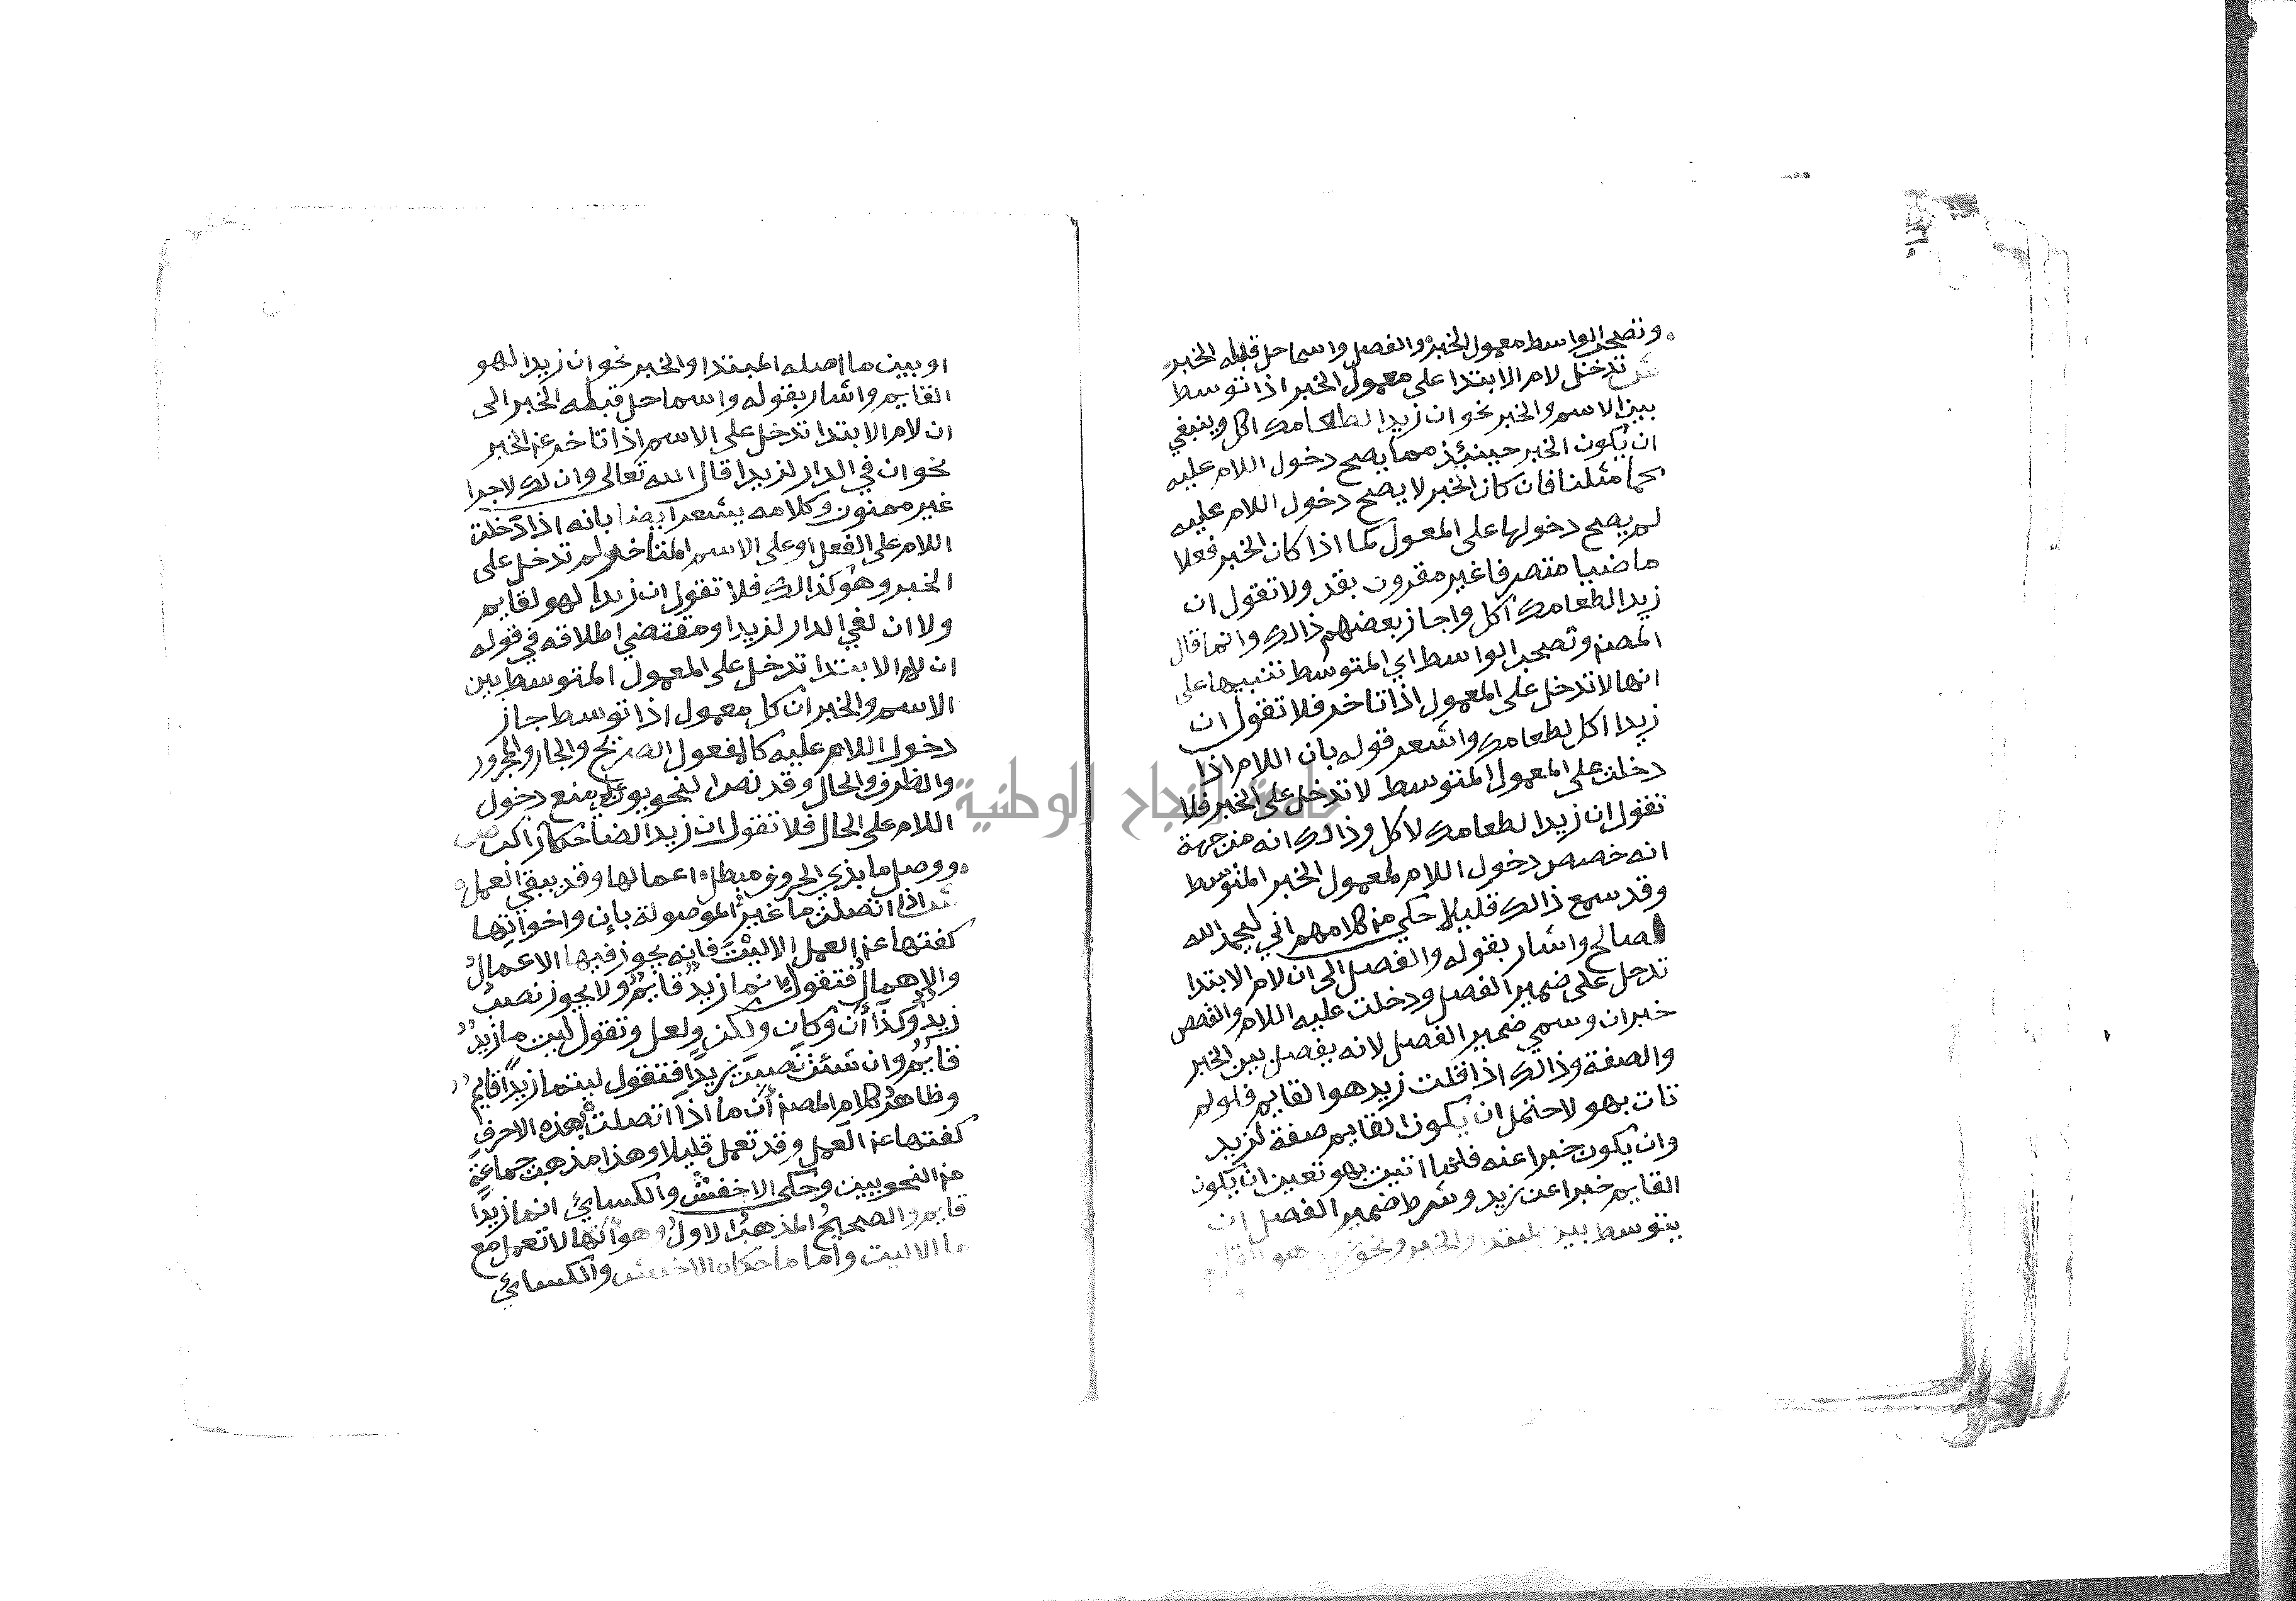 وتصحب الواسط معمول الخبر والفصل واسما حل قبله الخبر
ش تدخل لام الابتدا على معمول الخبر اذا توسط
بين الاسم والخبر نحو ان زيدا لطعامك اكل وينبغي
ان يكون الخبر حينئذ مما يصح دخول اللام عليه
كما مثلنا فان كان الخبر لا يصح دخول اللام عليه
لم يصح دخولها على المعمول كما اذا كان الخبر فعلا
ماضيا متصرفا غير مقرون بقد ولا تقول ان
زيدا لطعامك اكل واجاز بعضهم ذالك وانما قال
المصنف وتصحب الواسط اي المتوسط تنبيها على
انها لا تدخل على المعمول اذا تاخر فلا تقول ان
زيدا اكل لطعامك واشعر قوله بان اللام اذا
دخلت على المعمول المتوسط لا تدخل على الخبر فلا
تقول ان زيدا لطعامك لاكل وذالك انه من جهة
انه خصص دخول اللام لمعمول الخبر المتوسط
وقد سمع ذالك قليلا حكي من كلامهم اني لبحمد الله
لصالح واشار بقوله والفصل الى ان لام الابتدا
تدخل على ضمير الفصل ودخلت عليه اللام والقصص
خبر ان وسمي ضمير الفصل لانه يفصل بين الخبر
والصفة وذالك اذا قلت زيد هو القايم فلو لم
تات بهو لاحتمل ان يكون القايم صفة لزيد
وان يكون خبرا عنه فلما اتيت بهو تعين ان يكون
القايم خبرا عن زيد وشرط ضمير الفصل ان
يتوسط بين المبتدا والخبر ونحو زيد هو القايم
او بين ما اصله المبتدا والخبر نحو ان زيدا لهو
القايم واشار بقوله واسما حل قبله الخبر الى
ان لام الابتدا تدخل على الاسم اذا تاخر عن الخبر
نحو ان في الدار لزيدا قال الله تعالى وان لك لاجرا
غير ممنون وكلامه يشعر ايضا بانه اذا دخلت
اللام على الفصل او على الاسم المتاخر لم تدخل على
الخبر وهو كذالك فلا تقول ان زيدا لهو لقايم
ولا ان لفي الدار لزيدا ومقتضى اطلاقه في قوله
ان لام الابتدا تدخل على المعمول المتوسط بين
الاسم والخبر ان كل معمول اذا توسط جاز
دخول اللام عليه كالمفعول الصريح والجار والمجرور
والظرف والحال وقد نص النحويون على منع دخول
اللام على الحال فلا تقول ان زيدا لضاحكا راكب ص
ووصل ما بذي الحروف مبطل اعمالها وقد يبقى العمل
ش اذا اتصلت ما غير الموصولة بإن واخواتها
كفتها عن العمل الا ليت فانه يجوز فيها الاعمال
والاهمال فتقول انما زيد قايم ولا يجوز نصب
زيد وكذا أن وكان ولكن ولعل وتقول ليت ما زيد
قايم وان شئت نصبت زيدا فتقول ليتما زيدا قايم
وظاهر كلام المصنف أن ما اذا اتصلت بهذه الاحرف
كفتها عن العمل وقد تعمل قليلا وهذا مذهب جماعة
من النحويين وحكى الاخفش والكسائي انما زيدا
قايم والصحيح المذهب الاول وهو أنها لا تعمل مع
ما الا ليت وأما ما حكاه الاخفش والكسائي
جامعة النجاح الوطنية